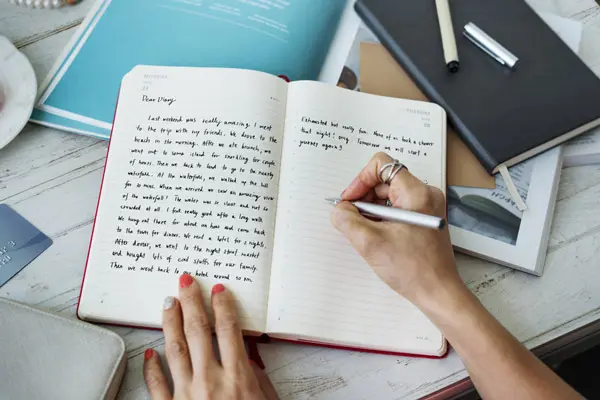 Dear Diary,
Last weekend was really amazing. I went
to the trip with my friends. We drove to the
beach in the morning. After we ate brunch, we
went out to some island for snorkling for couple
of hours. Then we back to land to go to the nearby
waterfalls. At the waterfalls, we walked up the hill
for 30 mins. When we arrived we saw an amazing view
of the waterfalls! The water was so clear and not
crowded at all. I felt really good after a long walk.
We hung out there for about an hour and come
back to the town for dinner. We rent a hotel for 2 nights.
After dinner, we went to the night street market
and bought lots of cool stuffs for our family.
Then we went back to hotel around 10 pm.
Exhausted but really fun. Three of us took a shower
that night! Tomorrow we will start a
journey again!